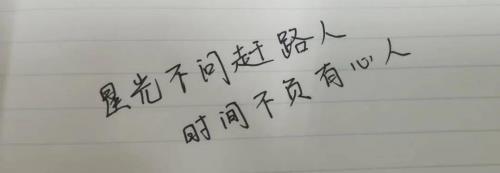 星光不问赶路人
时间不负有心人